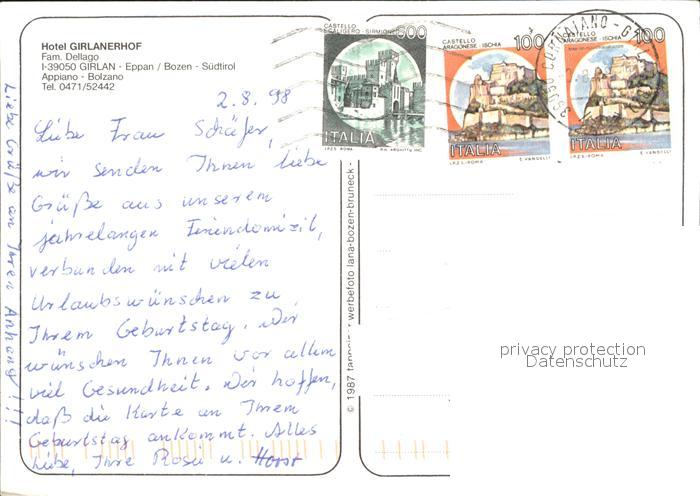 Hotel GIRLANERHOF
Fam. Dellago
I-39050 GIRLAN - Eppan / Bozen - Südtirol
Appiano - Bolzano
Tel. 0471/52442
2.8.98
Liebe Frau Schäfer,
wir senden Ihnen liebe
Grüße aus unserem
jahrelangen Feriendomizil,
verbunden mit vielen
Urlaubswünschen zu
Ihrem Geburtstag. Wir
wünschen Ihnen vor allem
viel Gesundheit. Wir hoffen,
daß die Karte an Ihrem
Geburtstag ankommt. Alles
Liebe, Ihre Rosii u. Horst
Liebe Grüße an Ihren Anhang!!!
© 1987 tappeiner werbefoto lana-bozen-bruneck
CASTELLO
SCALIGERO - SIRMIONE
500
ITALIA
I.P.Z.S. ROMA
CASTELLO
ARAGONESE - ISCHIA
100
ITALIA
I.P.Z.S. - ROMA E. VANGELLI
CASTELLO
ARAGONESE - ISCHIA
100
ITALIA
I.P.Z.S. - ROMA E. VANGELLI
privacy protection
Datenschutz